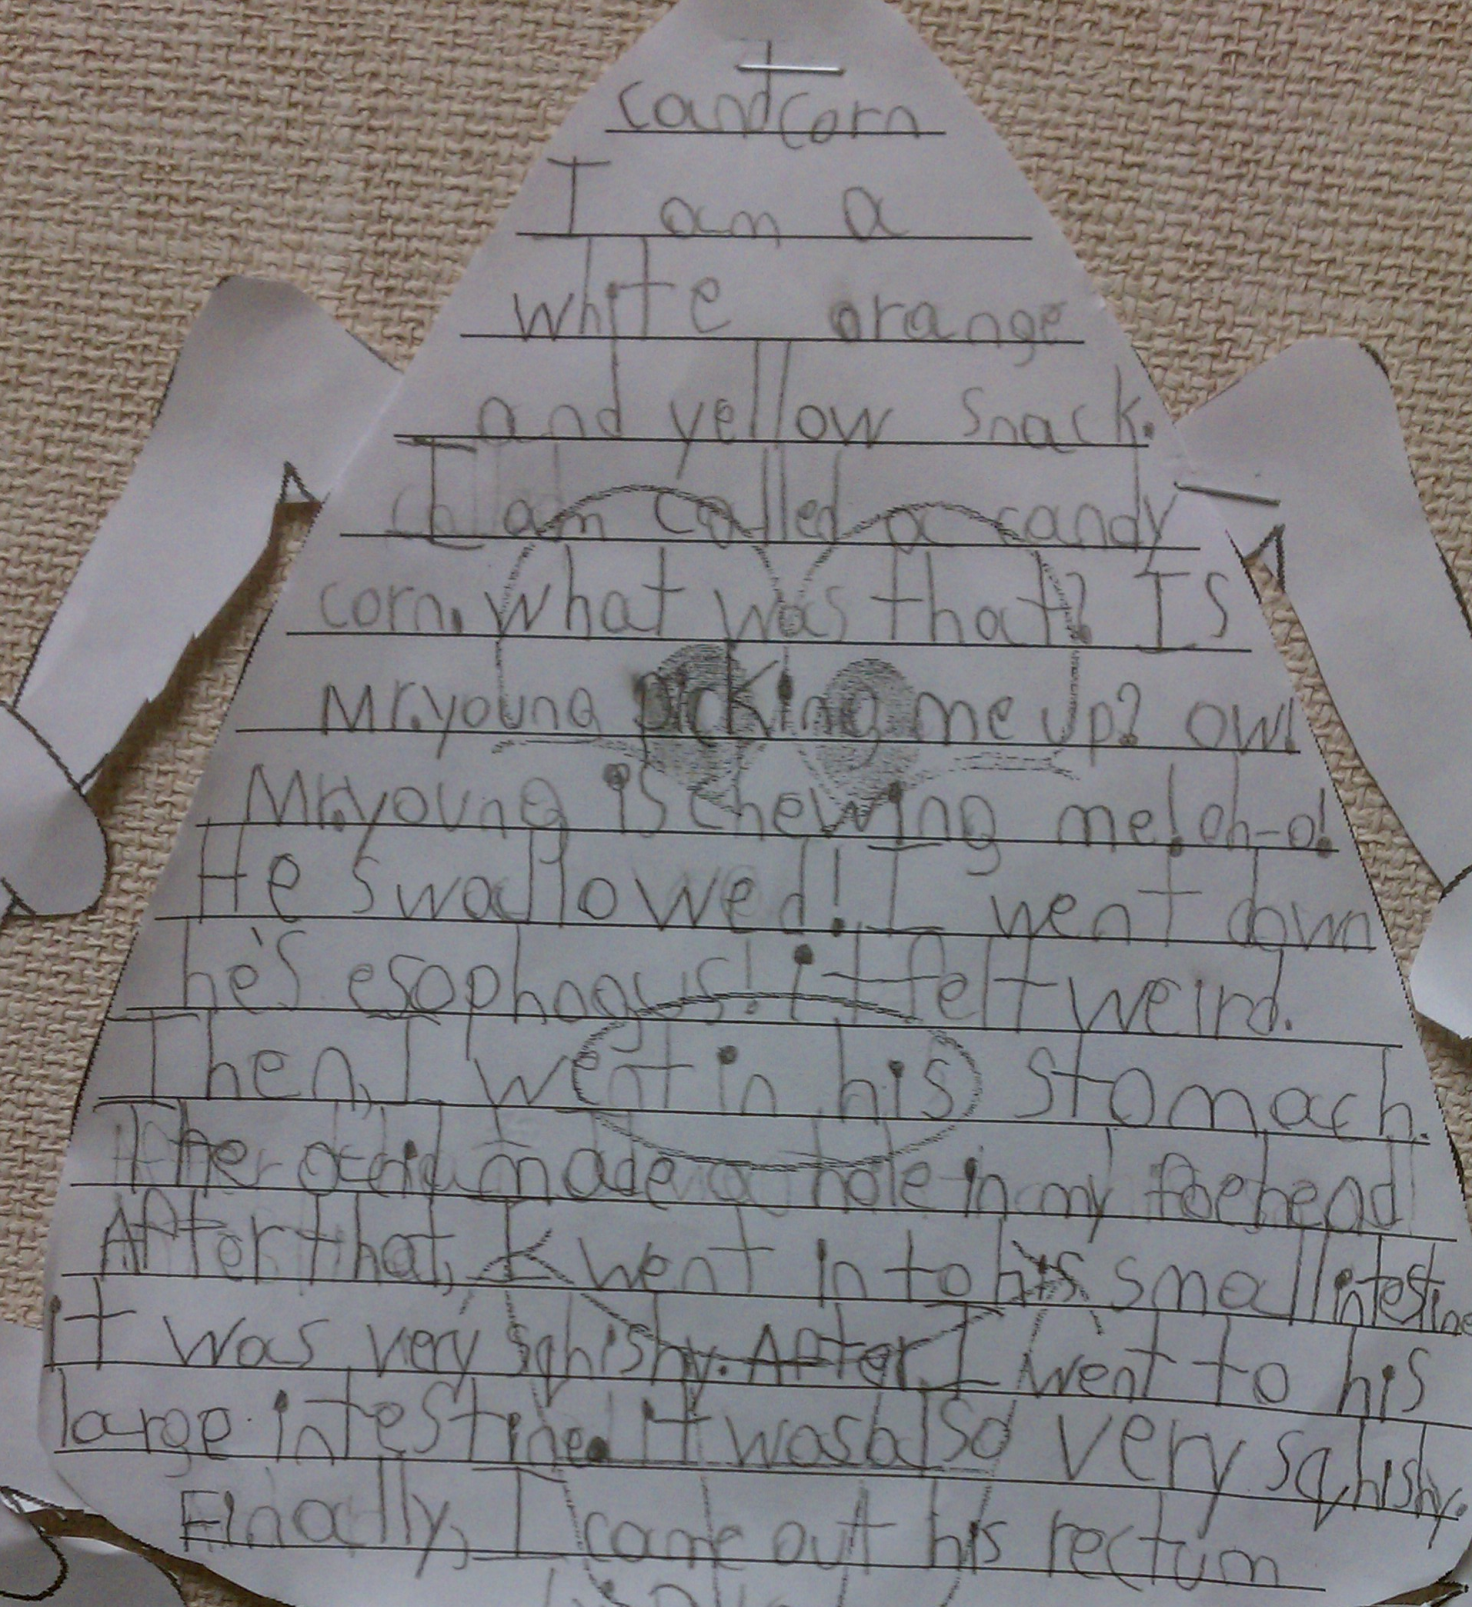 candcorn
I am a
white orange
and yellow snack.
I am called a candy
corn. what was that? IS
Mr.young picking me up? ow!
Mr.young is chewing me! oh-o!
He swallowed! I went down
he's esophagus! it felt weird.
Then, I went in his stomach.
The made a hole in my
After that, I went in to his small intestine
it was very sqhishy. After, I went to his
large intestine. It was also very sqhishy.
Finally, I came out his rectum